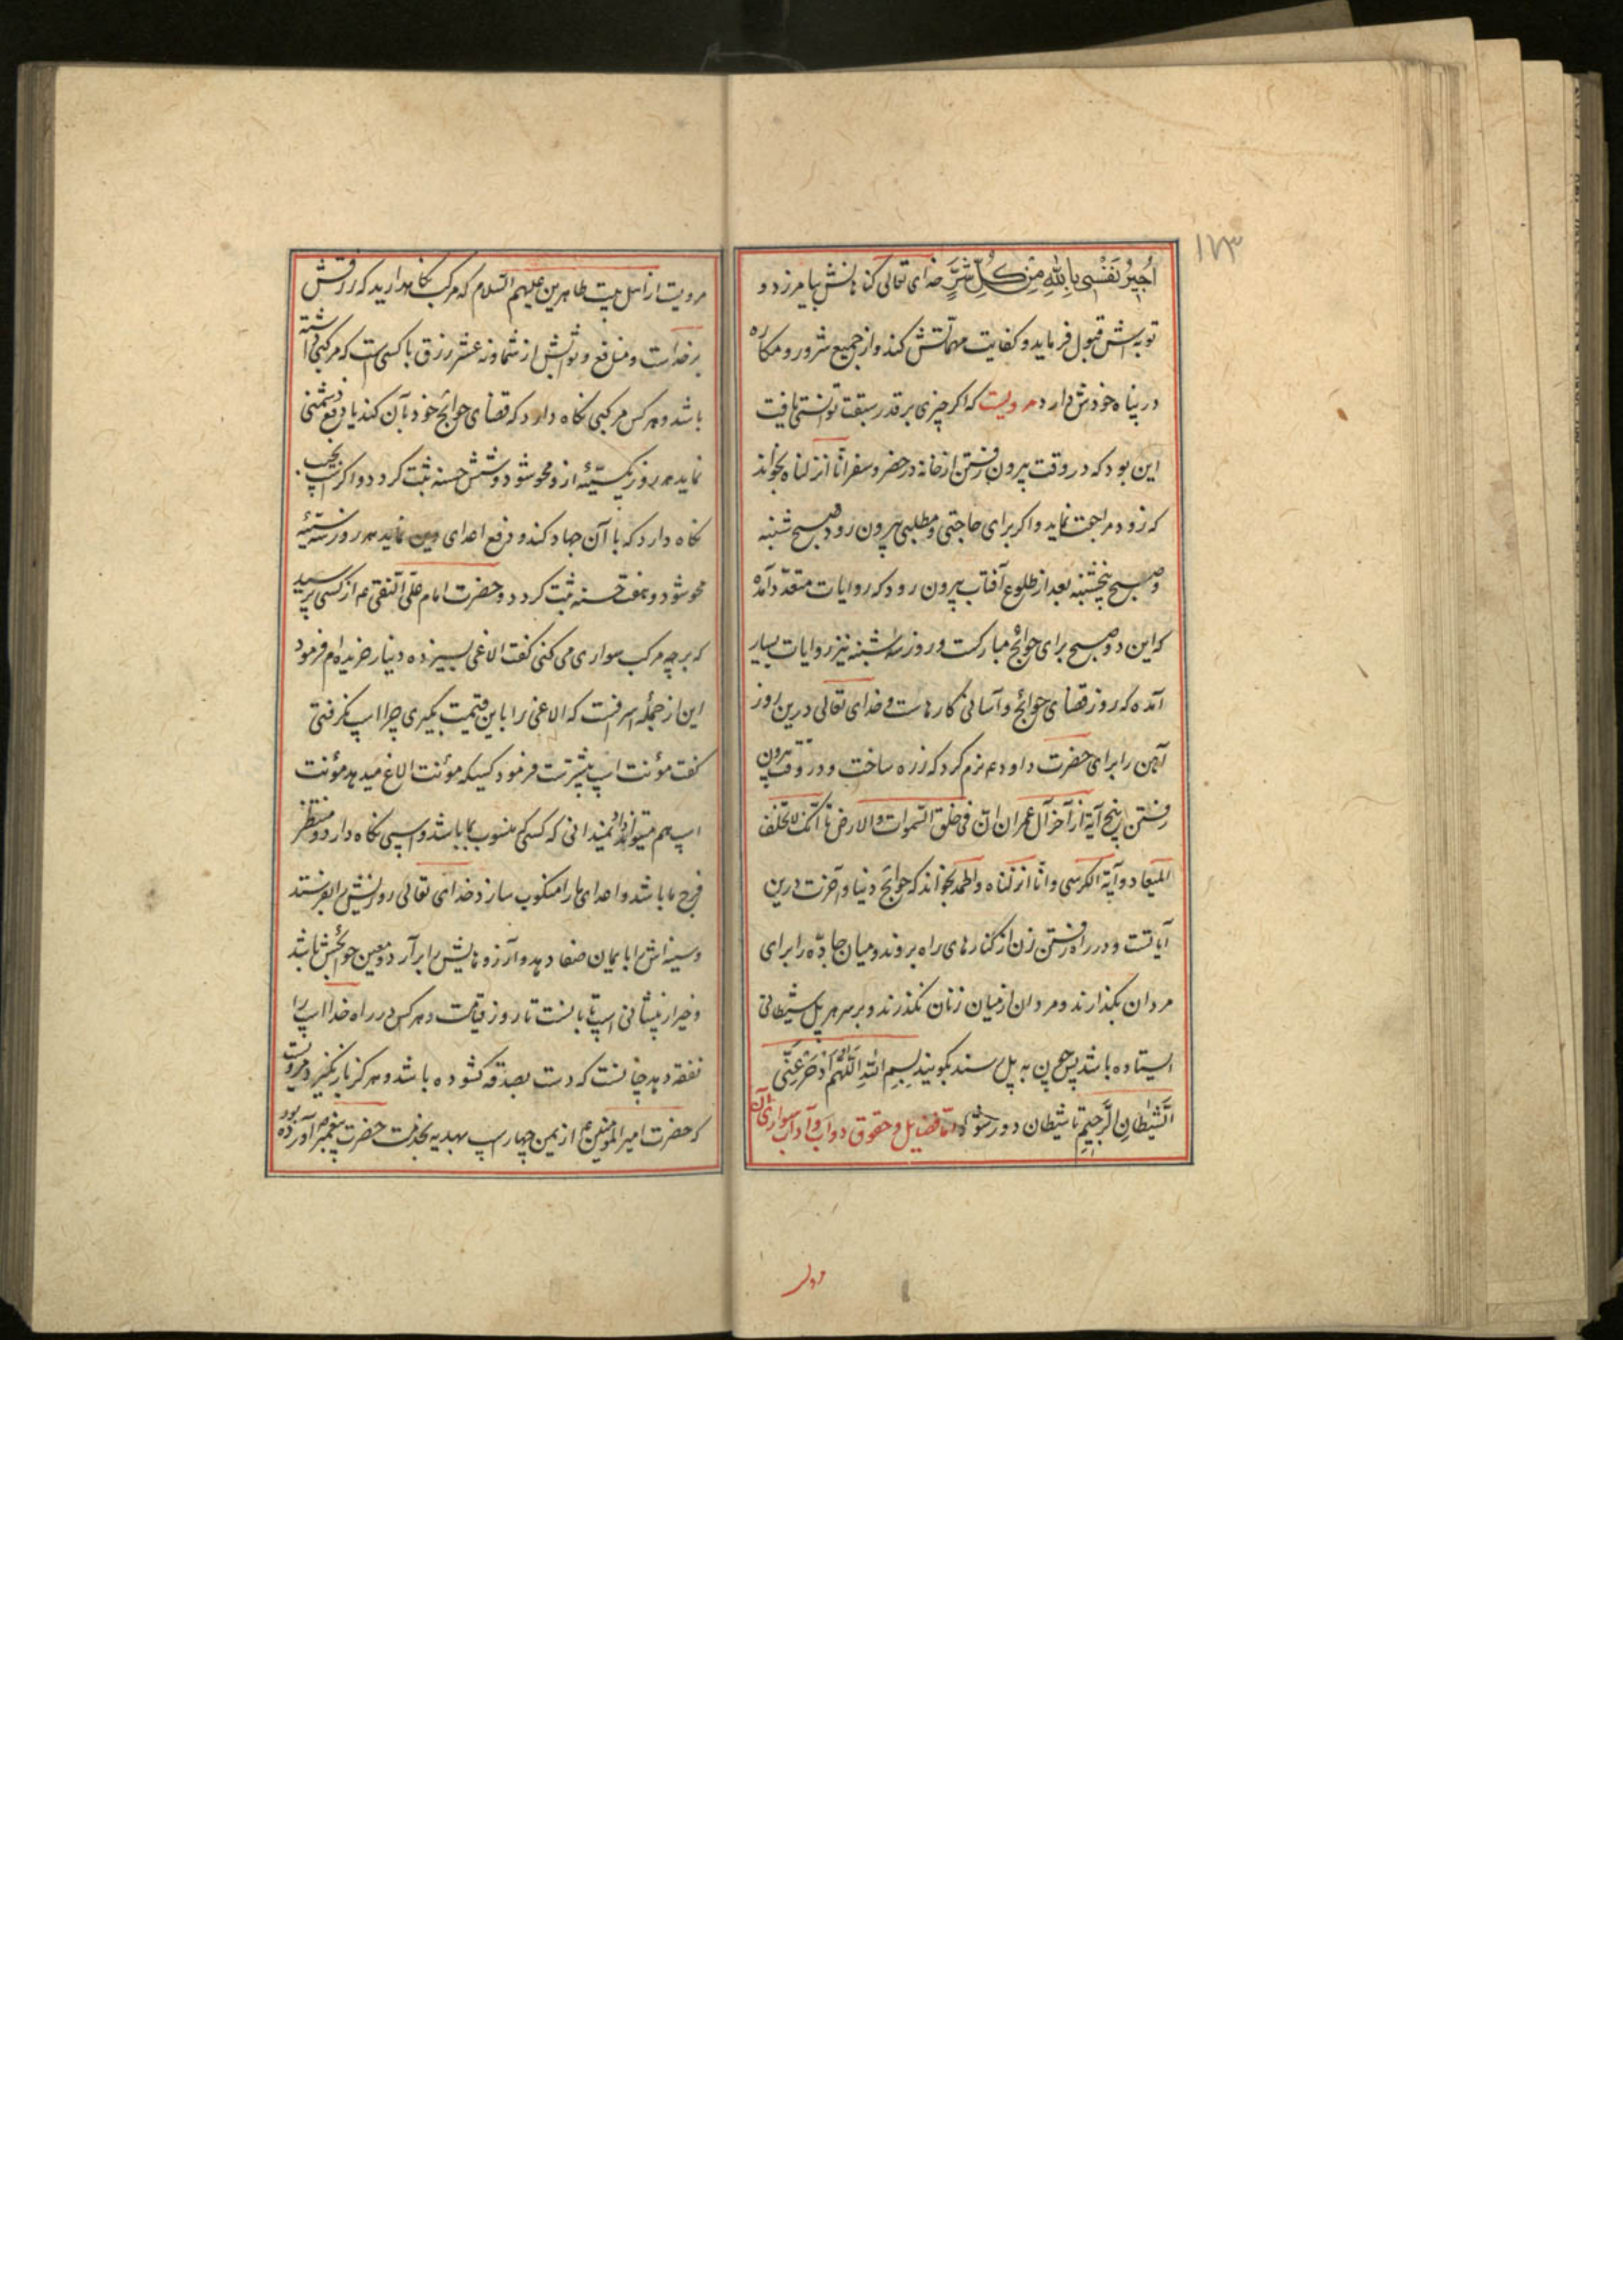 ١٧٣
اُجیرُ نَفْسی بِاللّهِ مِنْ کُلِّ شَرٍّ خدای تعالی کناهانش بیامرزد و
توبه‌اش قبول فرماید و کفایت مهمّاتش کند و از جمیع شرور و مکاره
در پناه خودش دارد مرویست که اکر چیزی بر قدر سبقت توانستی یافت
این بود که در وقت بیرون رفتن از خانه در حضر و سفر انّا انزلناه بخواند
که زود مراجعت نماید و اکر برای حاجتی و مطلبی بیرون رود صبح شنبه
و صبح پنجشنبه بعد از طلوع آفتاب بیرون رود که روایات متعدّد آمده
که این دو صبح برای حوائج مبارکست و روز سه شنبه نیز روایات بسیار
آمده که روز قضای حوائج و آسانی کارهاست و خدای تعالی درین روز
آهن را برای حضرت داود عم نرم کرد که زره ساخت و در وقت بیرون
رفتن پنج آیة از آخر آل عمران انّ فی خلق السّموات والارض تا انّک لا تخلف
المیعاد و آیة الکرسی و انّا انزلناه و الحمد بخواند که حوائج دنیا و آخرت درین
آیاتست و در راه رفتن زن از کنارهای راه بروند و میان جادّه را برای
مردان بکذارند و مردان از میان زنان نکذرند و بر سر هر پل شیطانی
ایستاده باشد پس چون به پل رسند بکویند بِسمِ اللّهِ اَللّهُمَّ ادْحَرْ عَنّی
الشَّیْطانِ الرَّجیمِ تا شیطان دور شود امّا فضایل و حقوق دواب و آداب سواری آن
مرویست از اهل بیت طاهرین علیهم السّلام که مرکب نکاهدارید که رزقش
بر خداست و منافع و ثوابش از شما و نه عشر رزق با کسی است که مرکبی داشته
باشد و هر کس مرکبی نکاه دارد که قضای حوائج خود بآن کند یا دفع دشمنی
نماید هر روز یک سیّئه ازو محو شود و شش حسنه ثبت کردد و اکر اسپ نجیب
نکاه دارد که با آن جهاد کند و دفع اعدای دین نماید هر روز سه سیّئه
محو شود و هفت حسنه ثبت کردد و حضرت امام علی النّقی عم از کسی پرسید
که بر چه مرکب سواری می کنی کفت الاغی بسیزده دینار خریده‌ام فرمود
این از جمله اسرافست که الاغی را باین قیمت بکیری چرا اسپ نکرفتی
کفت مؤنت اسپ بیشترست فرمود کسیکه مؤنت الاغ میدهد مؤنت
اسپ هم میتواند داد نمیدانی که کسی که منسوب بما باشد و اسپی نکاه دارد و منتظر
فرج ما باشد و اعدای ما را منکوب سازد خدای تعالی روزیش را بفرستد
و سینه‌اش را بایمان صفا دهد و آرزوهایش را برآرد و معین حوائجش باشد
و خیر از پیشانی اسپها بابست تا روز قیامت و هر کس در راه خدا اسپ را
نفقه دهد چنانست که دست بصدقه کشوده باشد و هرکز باز نکیرد و مرویست
که حضرت امیر المؤمنین عم از یمن چهار اسپ بهدیه بخدمت حضرت پیغمبر آورده بود